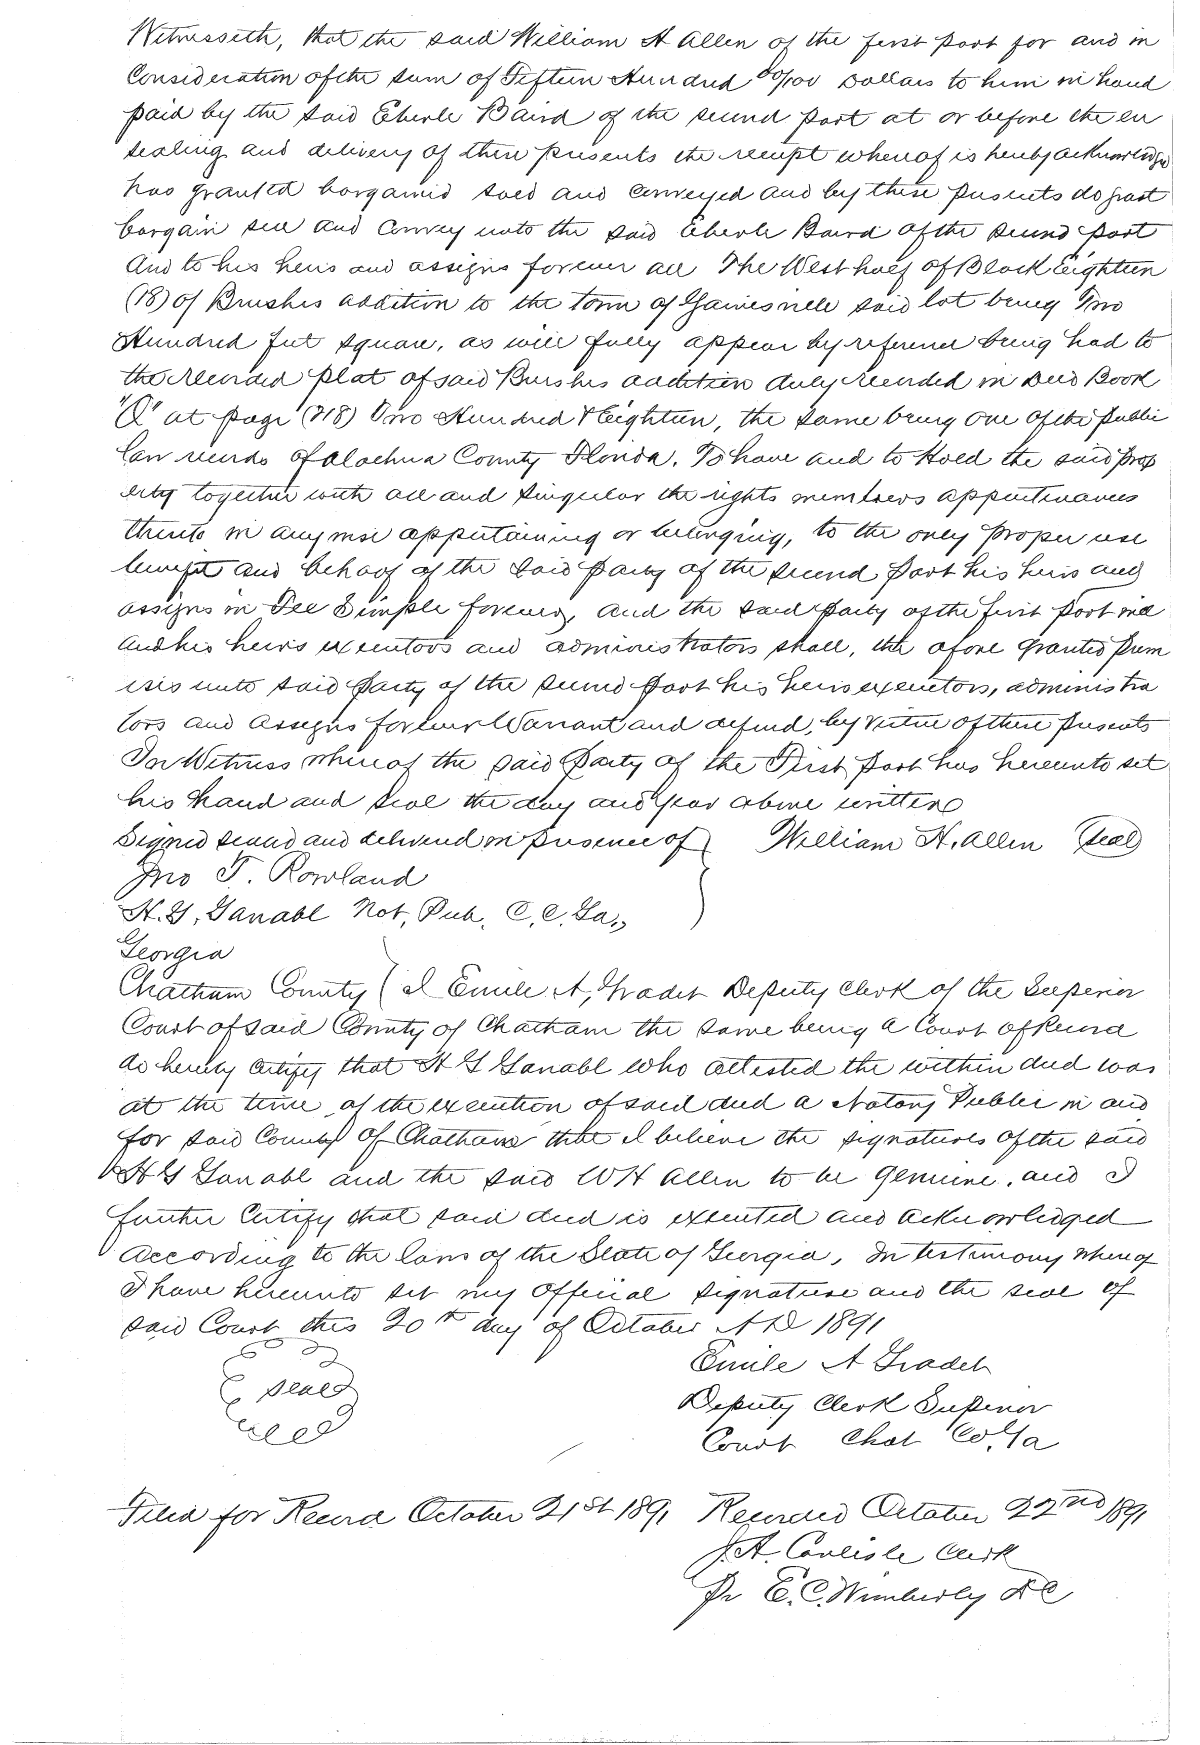 Witnesseth, that the said William H Allen of the first part for and in
Consideration of the sum of Fifteen Hundred 00/100 Dollars to him in hand
paid by the said Eberle Baird of the second part at or before the en
sealing and delivery of these presents the receipt whereof is hereby acknowledge
has granted bargained sold and conveyed and by these presents do grant
bargain sell and convey unto the said Eberle Baird of the second part
And to his heirs and assigns forever all The West half of Block Eighteen
(18) of Brushes addition to the town of Gainesville said lot being Two
Hundred feet square, as will fully appear by reference being had to
the recorded plat of said Brushes addition duly recorded in Deed Book
"Q" at page (218) Two Hundred & Eighteen, the same being one of the public
law records of Alachua County Florida. To have and to Hold the said prop
erty together with all and singular the rights members appurtenances
thereto in any wise appertaining or belonging, to the only proper use
benefit and behoof of the said party of the second part his heirs and
assigns in Fee Simple forever, and the said party of the first part will
and his heirs executors and administrators shall, the afore granted prem
ises unto said party of the second part his heirs executors, administra
tors and assigns forever Warrant and defend, by virtue of these presents
In Witness whereof the said party of the First part has hereunto set
his hand and seal the day and year above written
Signed sealed and delivered in presence of } William H. Allen (Seal)
Jno T. Rowland
H. G. Ganahl Not, Pub, C. C. Ga.,
Georgia
Chatham County ( I Emile A, Gradet Deputy Clerk of the Superior
Court of said County of Chatham the same being a Court of Record
do hereby certify that H G Ganahl who attested the within deed was
at the time of the execution of said deed a Notary Public in and
for said County of Chatham that I believe the signatures of the said
H G Ganahl and the said W H Allen to be genuine, and I
further certify that said deed is executed and acknowledged
according to the laws of the State of Georgia, In testimony whereof
I have hereunto set my official signature and the seal of
said Court this 20th day of October A D 1891
Seal
Emile A Gradet
Deputy Clerk Superior
Court Chat Co, Ga
Filed for Record October 21st 1891 Recorded October 22nd 1891
J. A. Carlisle Clerk
Pr E. C. Wimberly D C